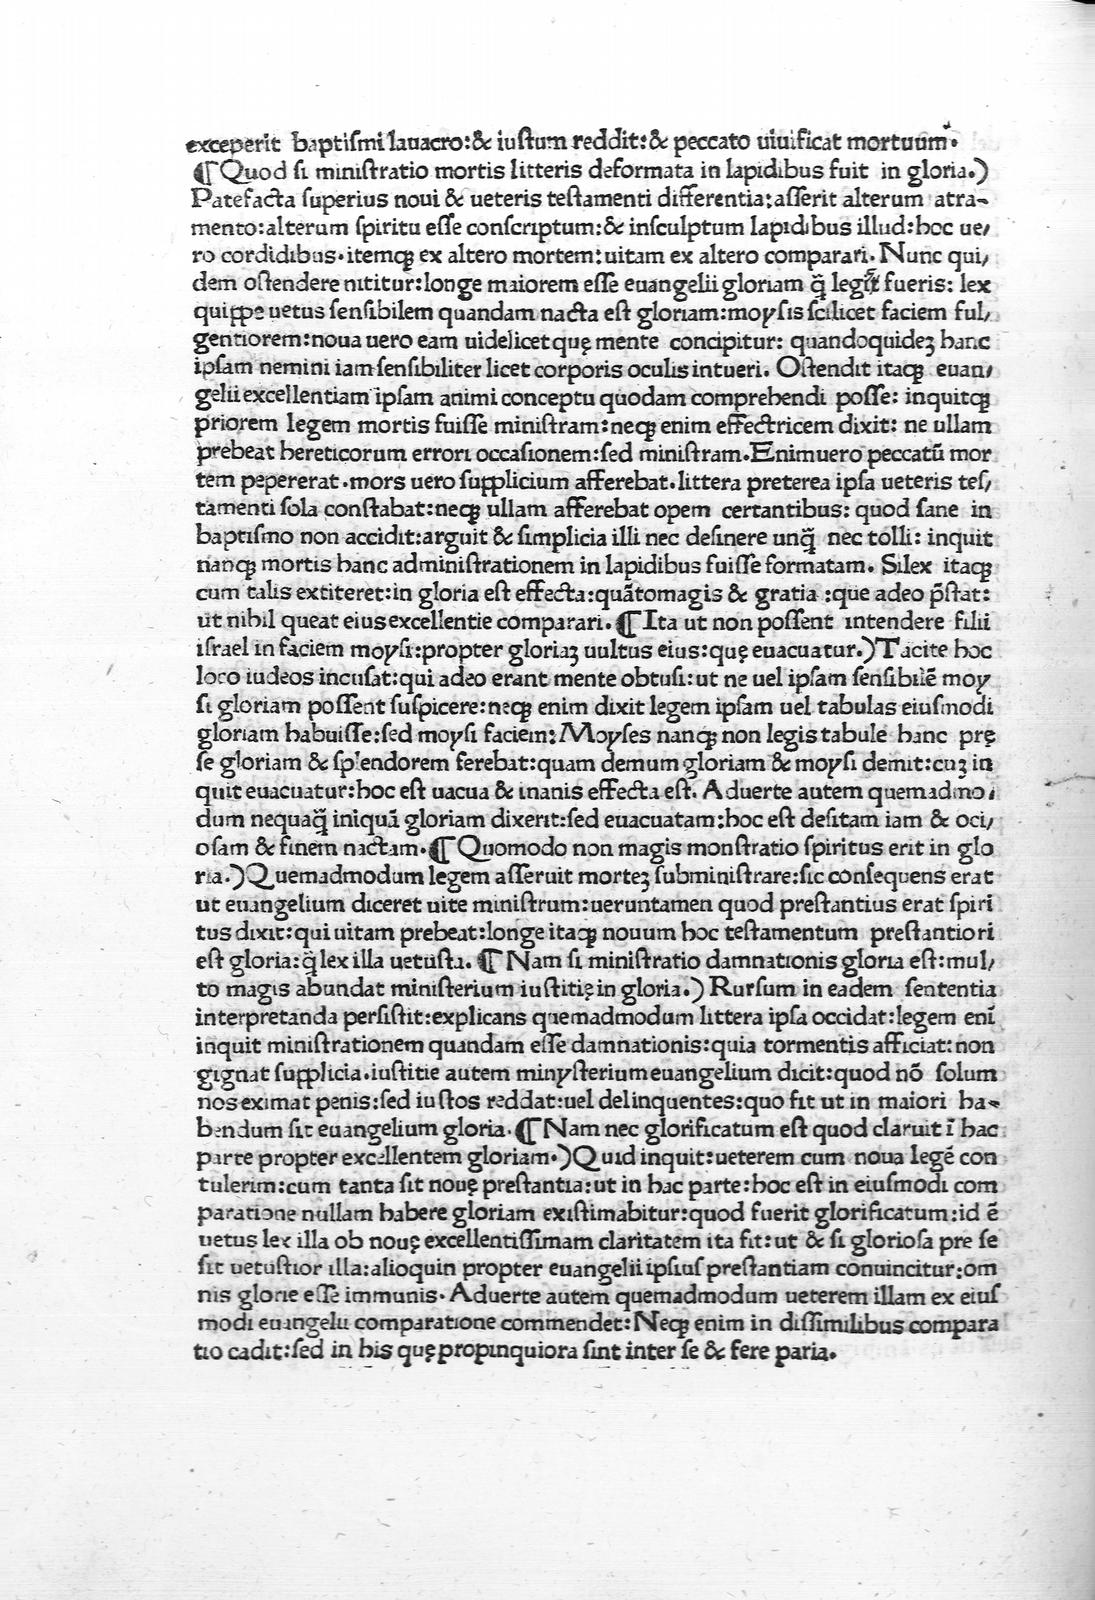 exceperit baptiſmi lauacro:& iuſtum reddit:& peccato uiuificat mortuum.
¶Quod ſi miniſtratio mortis litteris deformata in lapidibus fuit in gloria.)
Patefacta ſuperius noui & ueteris teſtamenti differentia:aſſerit alterum atra-
mento:alterum ſpiritu eſſe conſcriptum:& inſculptum lapidibus illud:hoc ue/
ro cordidibus.itemqꝫ ex altero mortem:uitam ex altero comparari.Nunc qui/
dem oſtendere nititur:longe maiorem eſſe euangelii gloriam q̃ fueris: lex
quippe uetus ſenſibilem quandam nacta eſt gloriam:moyſis ſcilicet faciem ful/
gentiorem:noua uero eam uidelicet quę mente concipitur: quandoquideꝫ hanc
ipſam nemini iam ſenſibiliter licet corporis oculis intueri. Oſtendit itaqꝫ euan/
gelii excellentiam ipſam animi conceptu quodam comprehendi poſſe: inquitqꝫ
priorem legem mortis fuiſſe miniſtram:neqꝫ enim effectricem dixit: ne ullam
prebeat hereticorum errori occaſionem:ſed miniſtram.Enimuero peccatū mor
tem pepererat.mors uero ſupplicium afferebat.littera preterea ipſa ueteris teſ/
tamenti ſola conſtabat:neqꝫ ullam afferebat opem certantibus: quod ſane in
baptiſmo non accidit:arguit & ſimplicia illi nec deſinere unq̃ nec tolli: inquit
nanqꝫ mortis hanc adminiſtrationem in lapidibus fuiſſe formatam. Silex itaqꝫ
cum talis extiteret:in gloria eſt effecta:quātomagis & gratia :que adeo p̄ſtat:
ut nihil queat eius excellentie comparari.¶Ita ut non poſſent intendere filii
iſrael in faciem moyſi:propter gloriaꝫ uultus eius:quę euacuatur.)Tacite hoc
loco iudeos incuſat:qui adeo erant mente obtuſi:ut ne uel ipſam ſenſibilē moy
ſi gloriam poſſent ſuſpicere:neqꝫ enim dixit legem ipſam uel tabulas eiuſmodi
gloriam habuiſſe:ſed moyſi faciem:Moyſes nanqꝫ non legis tabule hanc prę
ſe gloriam & ſplendorem ferebat:quam demum gloriam & moyſi demit:cuꝫ in
quit euacuatur:hoc eſt uacua & inanis effecta eſt. Aduerte autem quemadmo/
dum nequaq̃ iniquā gloriam dixerit:ſed euacuatam:hoc eſt deſitam iam & oci/
oſam & finem nactam.¶Quomodo non magis monſtratio ſpiritus erit in glo
ria.)Quemadmodum legem aſſeruit morteꝫ ſubminiſtrare:ſic conſequens erat
ut euangelium diceret uite miniſtrum:ueruntamen quod preſtantius erat ſpiri
tus dixit:qui uitam prebeat:longe itaqꝫ nouum hoc teſtamentum preſtantiori
eſt gloria:q̃ lex illa uetuſta.¶Nam ſi miniſtratio damnationis gloria eſt:mul/
to magis abundat miniſterium iuſtitię in gloria.)Rurſum in eadem ſententia
interpretanda perſiſtit:explicans quemadmodum littera ipſa occidat:legem enī
inquit miniſtrationem quandam eſſe damnationis:quia tormentis afficiat:non
gignat ſupplicia.iuſtitie autem minyſterium euangelium dicit:quod nō ſolum
nos eximat penis:ſed iuſtos reddat:uel delinquentes:quo fit ut in maiori ha-
bendum ſit euangelium gloria.¶Nam nec glorificatum eſt quod claruit ī hac
parte propter excellentem gloriam.)Quid inquit:ueterem cum noua legē con
tulerim:cum tanta ſit nouę preſtantia:ut in hac parte:hoc eſt in eiuſmodi com
paratione nullam habere gloriam exiſtimabitur:quod fuerit glorificatum:id ē
uetus lex illa ob nouę excellentiſſimam claritatem ita fit:ut & ſi glorioſa pre ſe
ſit uetuſtior illa:alioquin propter euangelii ipſius preſtantiam conuincitur:om
nis glorie eſſe immunis.Aduerte autem quemadmodum ueterem illam ex eiuſ
modi euangelii comparatione commendet:Neqꝫ enim in diſſimilibus compara
tio cadit:ſed in his quę propinquiora ſint inter ſe & fere paria.